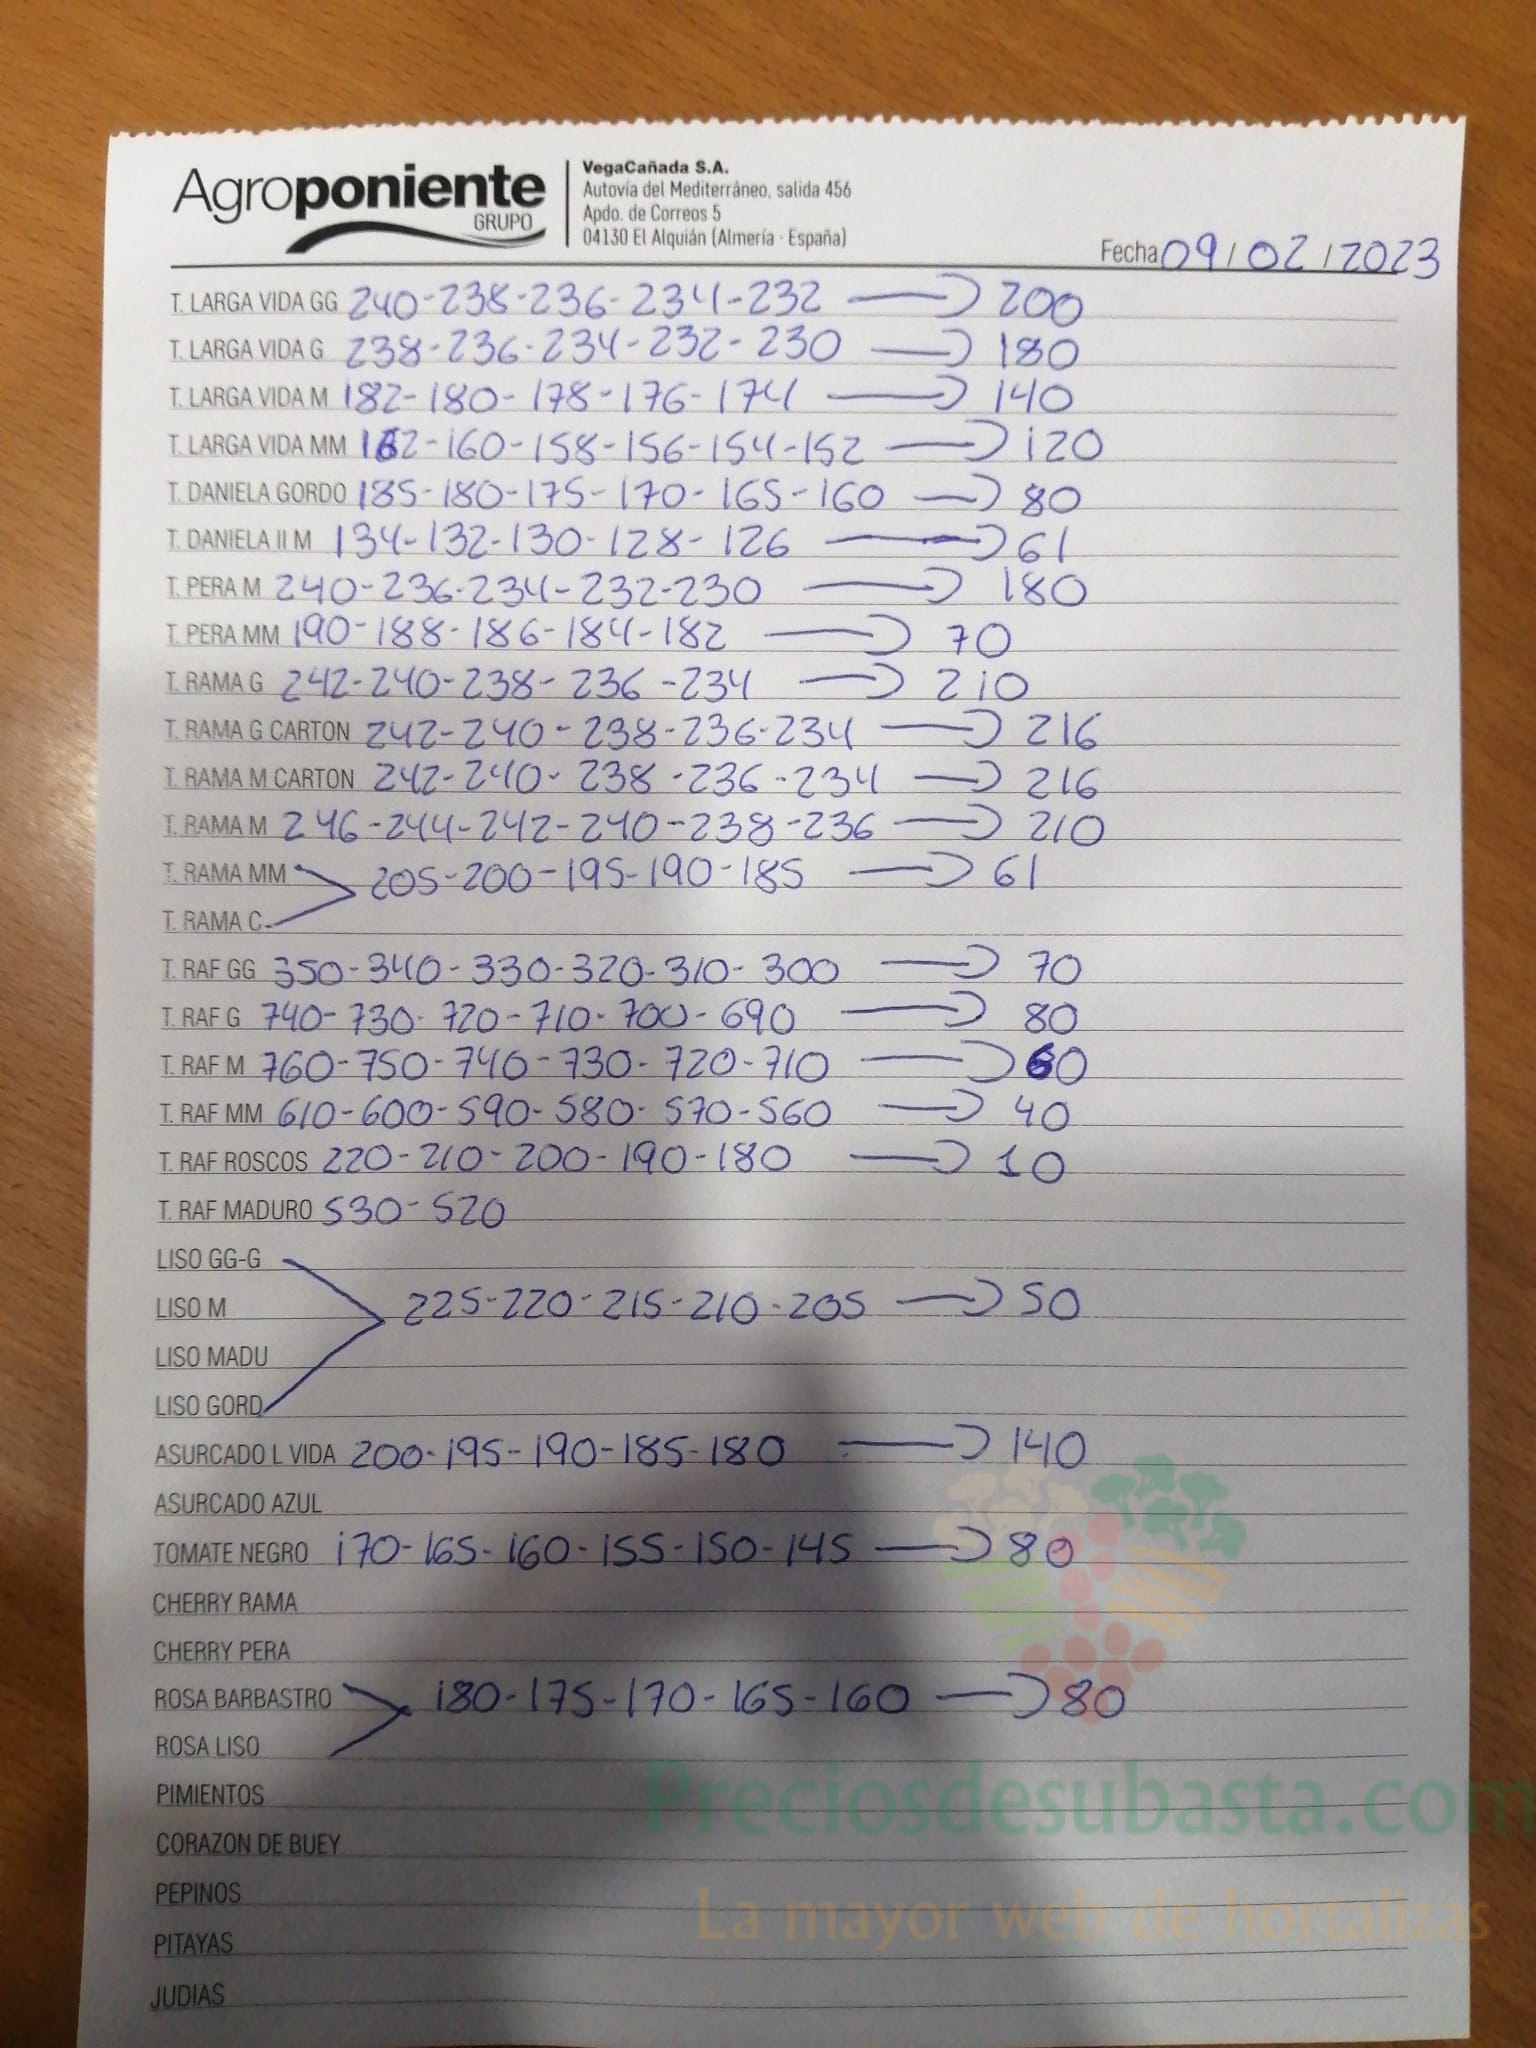 Agroponiente
GRUPO
VegaCañada S.A.
Autovía del Mediterráneo, salida 456
Apdo. de Correos 5
04130 El Alquián (Almería · España)
Fecha 09/02/2023
T. LARGA VIDA GG 240-238-236-234-232 → 200
T. LARGA VIDA G 238-236-234-232-230 → 180
T. LARGA VIDA M 182-180-178-176-174 → 140
T. LARGA VIDA MM 162-160-158-156-154-152 → 120
T. DANIELA GORDO 185-180-175-170-165-160 → 80
T. DANIELA II M 134-132-130-128-126 → 61
T. PERA M 240-236-234-232-230 → 180
T. PERA MM 190-188-186-184-182 → 70
T. RAMA G 242-240-238-236-234 → 210
T. RAMA G CARTON 242-240-238-236-234 → 216
T. RAMA M CARTON 242-240-238-236-234 → 216
T. RAMA M 246-244-242-240-238-236 → 210
T. RAMA MM 205-200-195-190-185 → 61
T. RAMA C
T. RAF GG 350-340-330-320-310-300 → 70
T. RAF G 740-730-720-710-700-690 → 80
T. RAF M 760-750-740-730-720-710 → 60
T. RAF MM 610-600-590-580-570-560 → 40
T. RAF ROSCOS 220-210-200-190-180 → 10
T. RAF MADURO 530-520
LISO GG-G
LISO M 225-220-215-210-205 → 50
LISO MADU
LISO GORD
ASURCADO L VIDA 200-195-190-185-180 → 140
ASURCADO AZUL
TOMATE NEGRO 170-165-160-155-150-145 → 80
CHERRY RAMA
CHERRY PERA
ROSA BARBASTRO 180-175-170-165-160 → 80
ROSA LISO
PIMIENTOS
Preciosdesubasta.com
CORAZON DE BUEY
PEPINOS
La mayor web de hortalizas
PITAYAS
JUDIAS